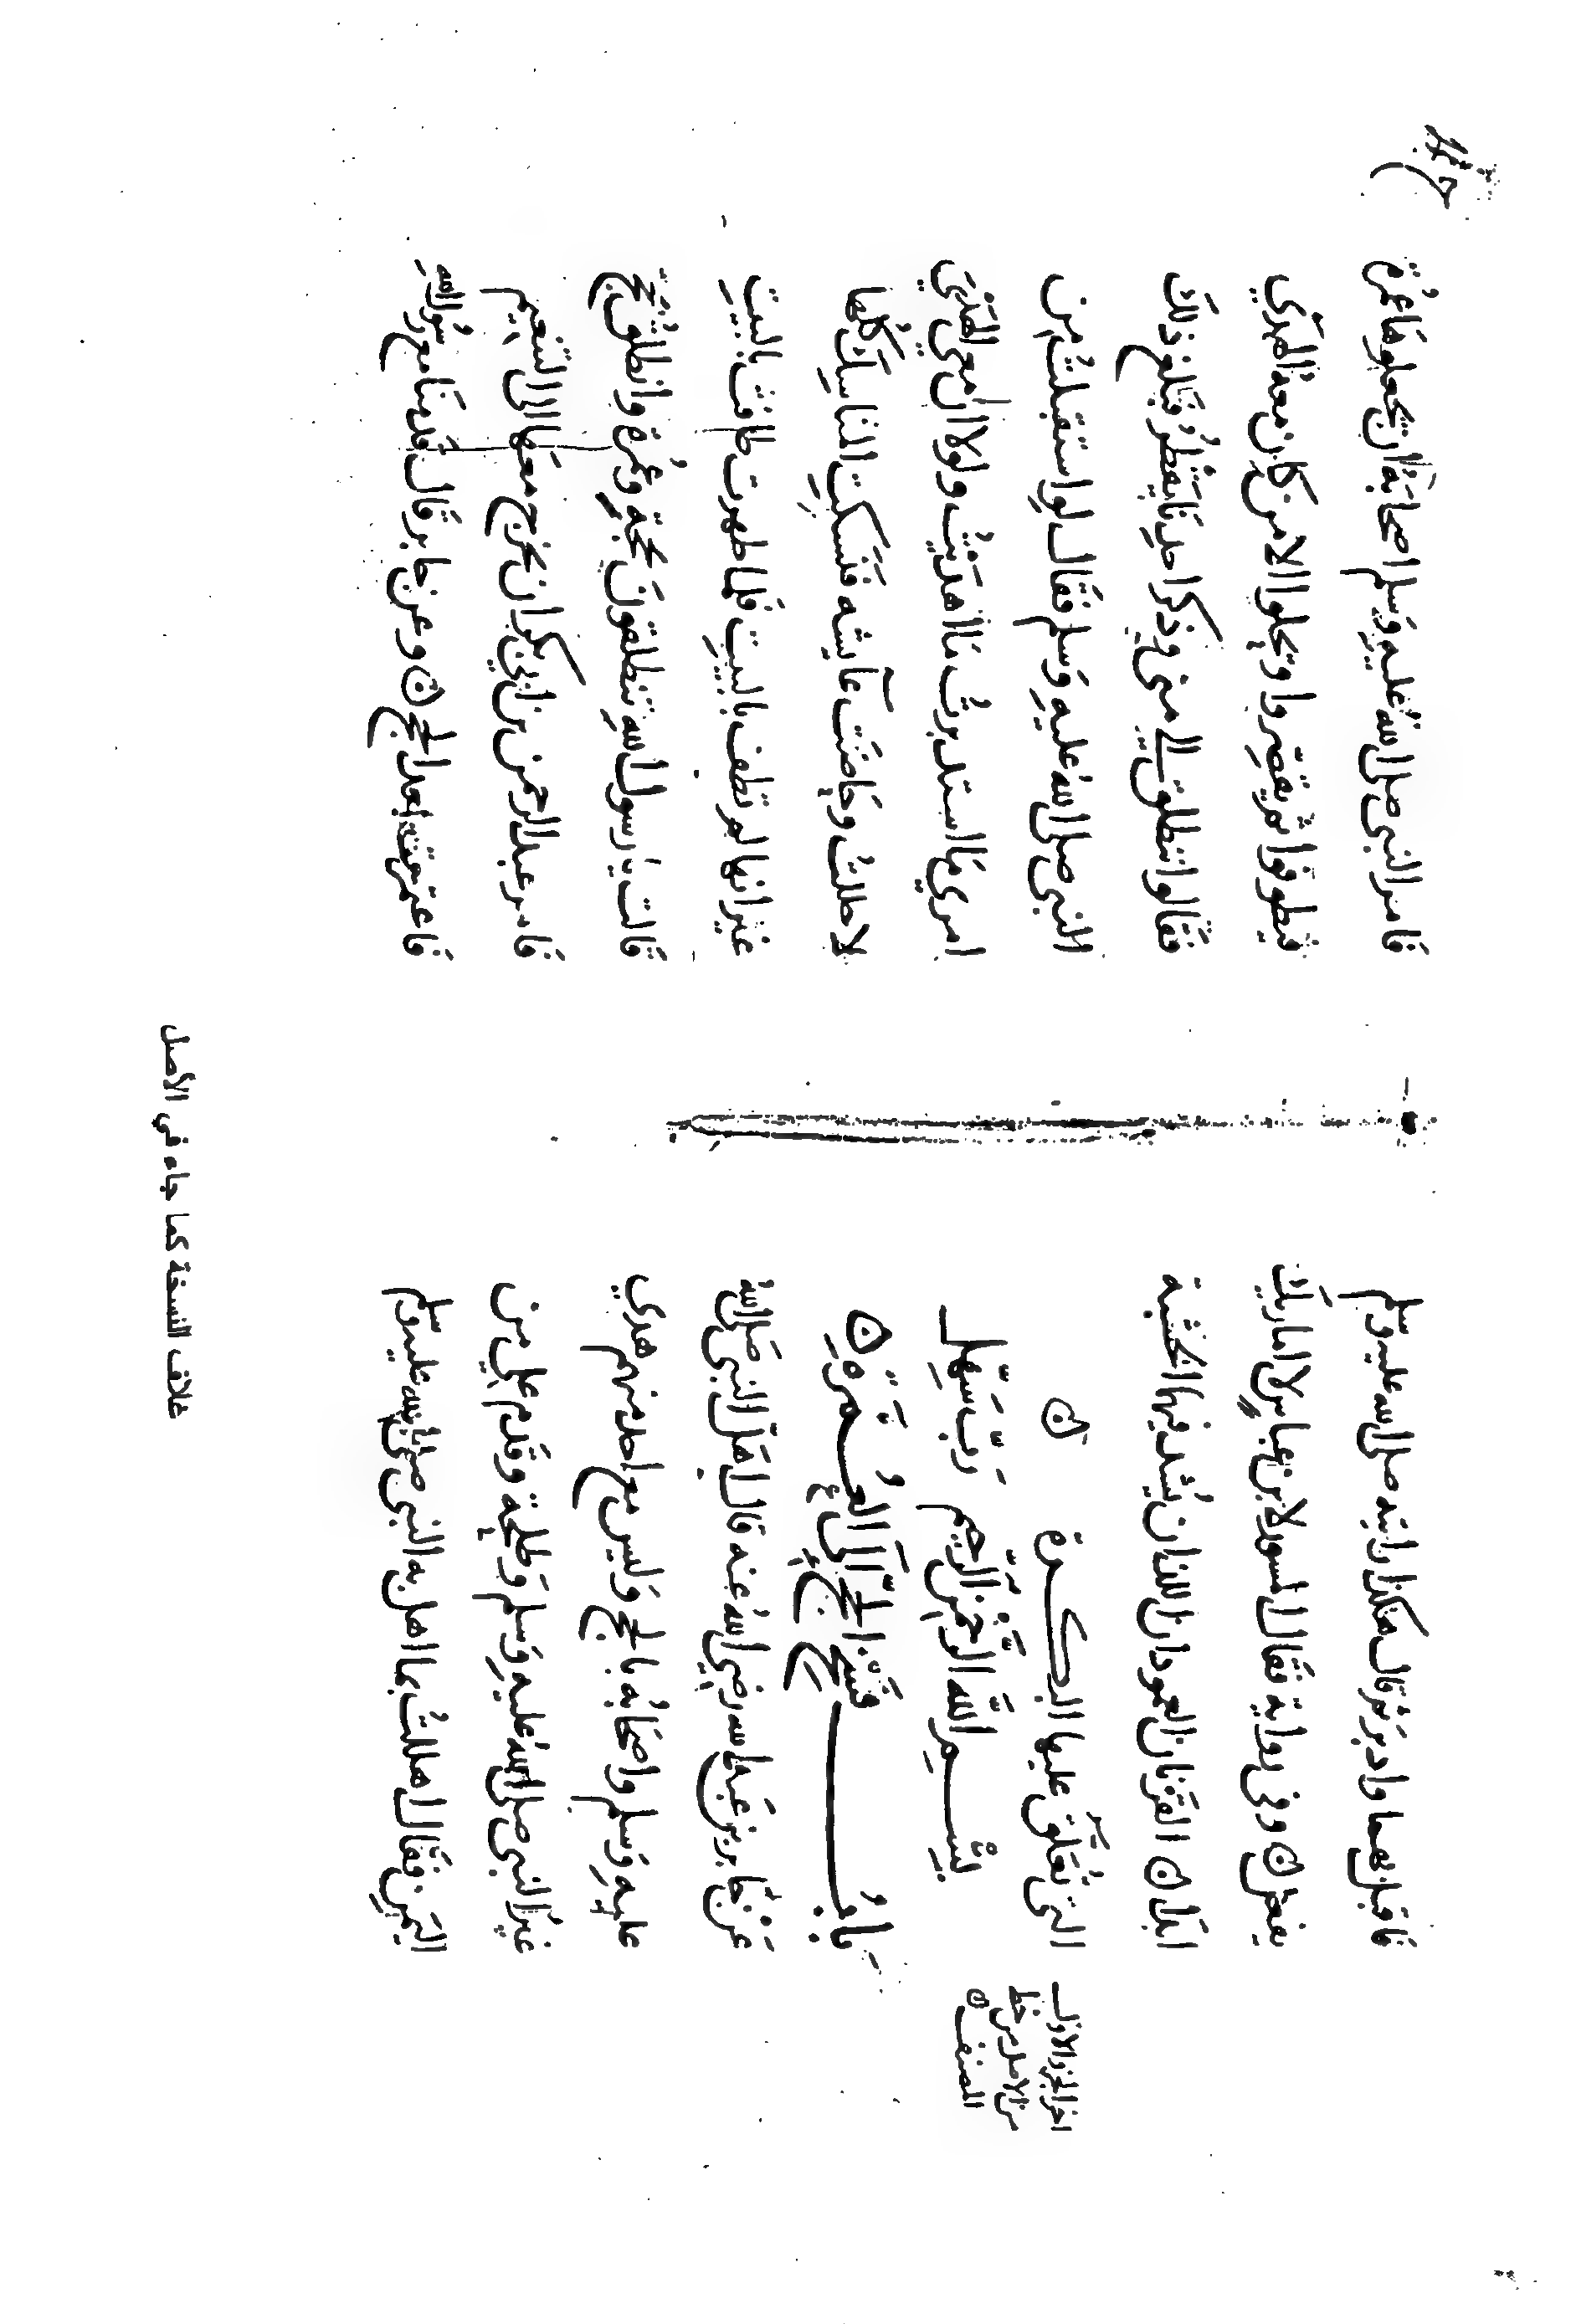 فاقبل بهما وادبر ثم قال هكذا رايته صلى الله عليه وسلم
يفعل ن وفي رواية فقال المسور لابن عباس لا اماريك
ابدا ن القرنان العمودان اللذان تُشد فيها الخشبة
التي تُعلق عليها البكرة ن
اخر الجزء الاول
من الاصل من خط
المصنف
بسم الله الرحمن الرحيم رب سهل
باب فسخ الحج الى العمرة ن
عن جابر بن عبد الله رضي الله عنه قال اهل النبي صلى الله
عليه وسلم واصحابه بالحج وليس مع احد منهم هدي
غير النبي صلى الله عليه وسلم وطلحة وقدم علي من
اليمن فقال اهللت بما اهل به النبي صلى الله عليه وسلم
فامر النبي صلى الله عليه وسلم اصحابه ان يجعلوها عمرة
فيطوفوا ثم يقصروا ويحلوا الا من كان معه الهدي
فقالوا ننطلق الى منى وذكر احدنا يقطر فبلغ ذلك
النبي صلى الله عليه وسلم فقال لو استقبلت من
امري ما استدبرت ما اهديت ولولا ان معي الهدي
لاحللت وحاضت عايشه فنسكت المناسك كلها
غير انها لم تطف بالبيت فلما طهرت طافت بالبيت
قالت يا رسول الله تنطلقون بحجة وعمرة وانطلق بحج
فامر عبد الرحمن بن ابي بكر ان يخرج معها الى التنعيم
فاعتمرت بعد الحج ن وعن جابر قال قدمنا مع رسول الله
غلاف النسخة كما جاء في الأصل